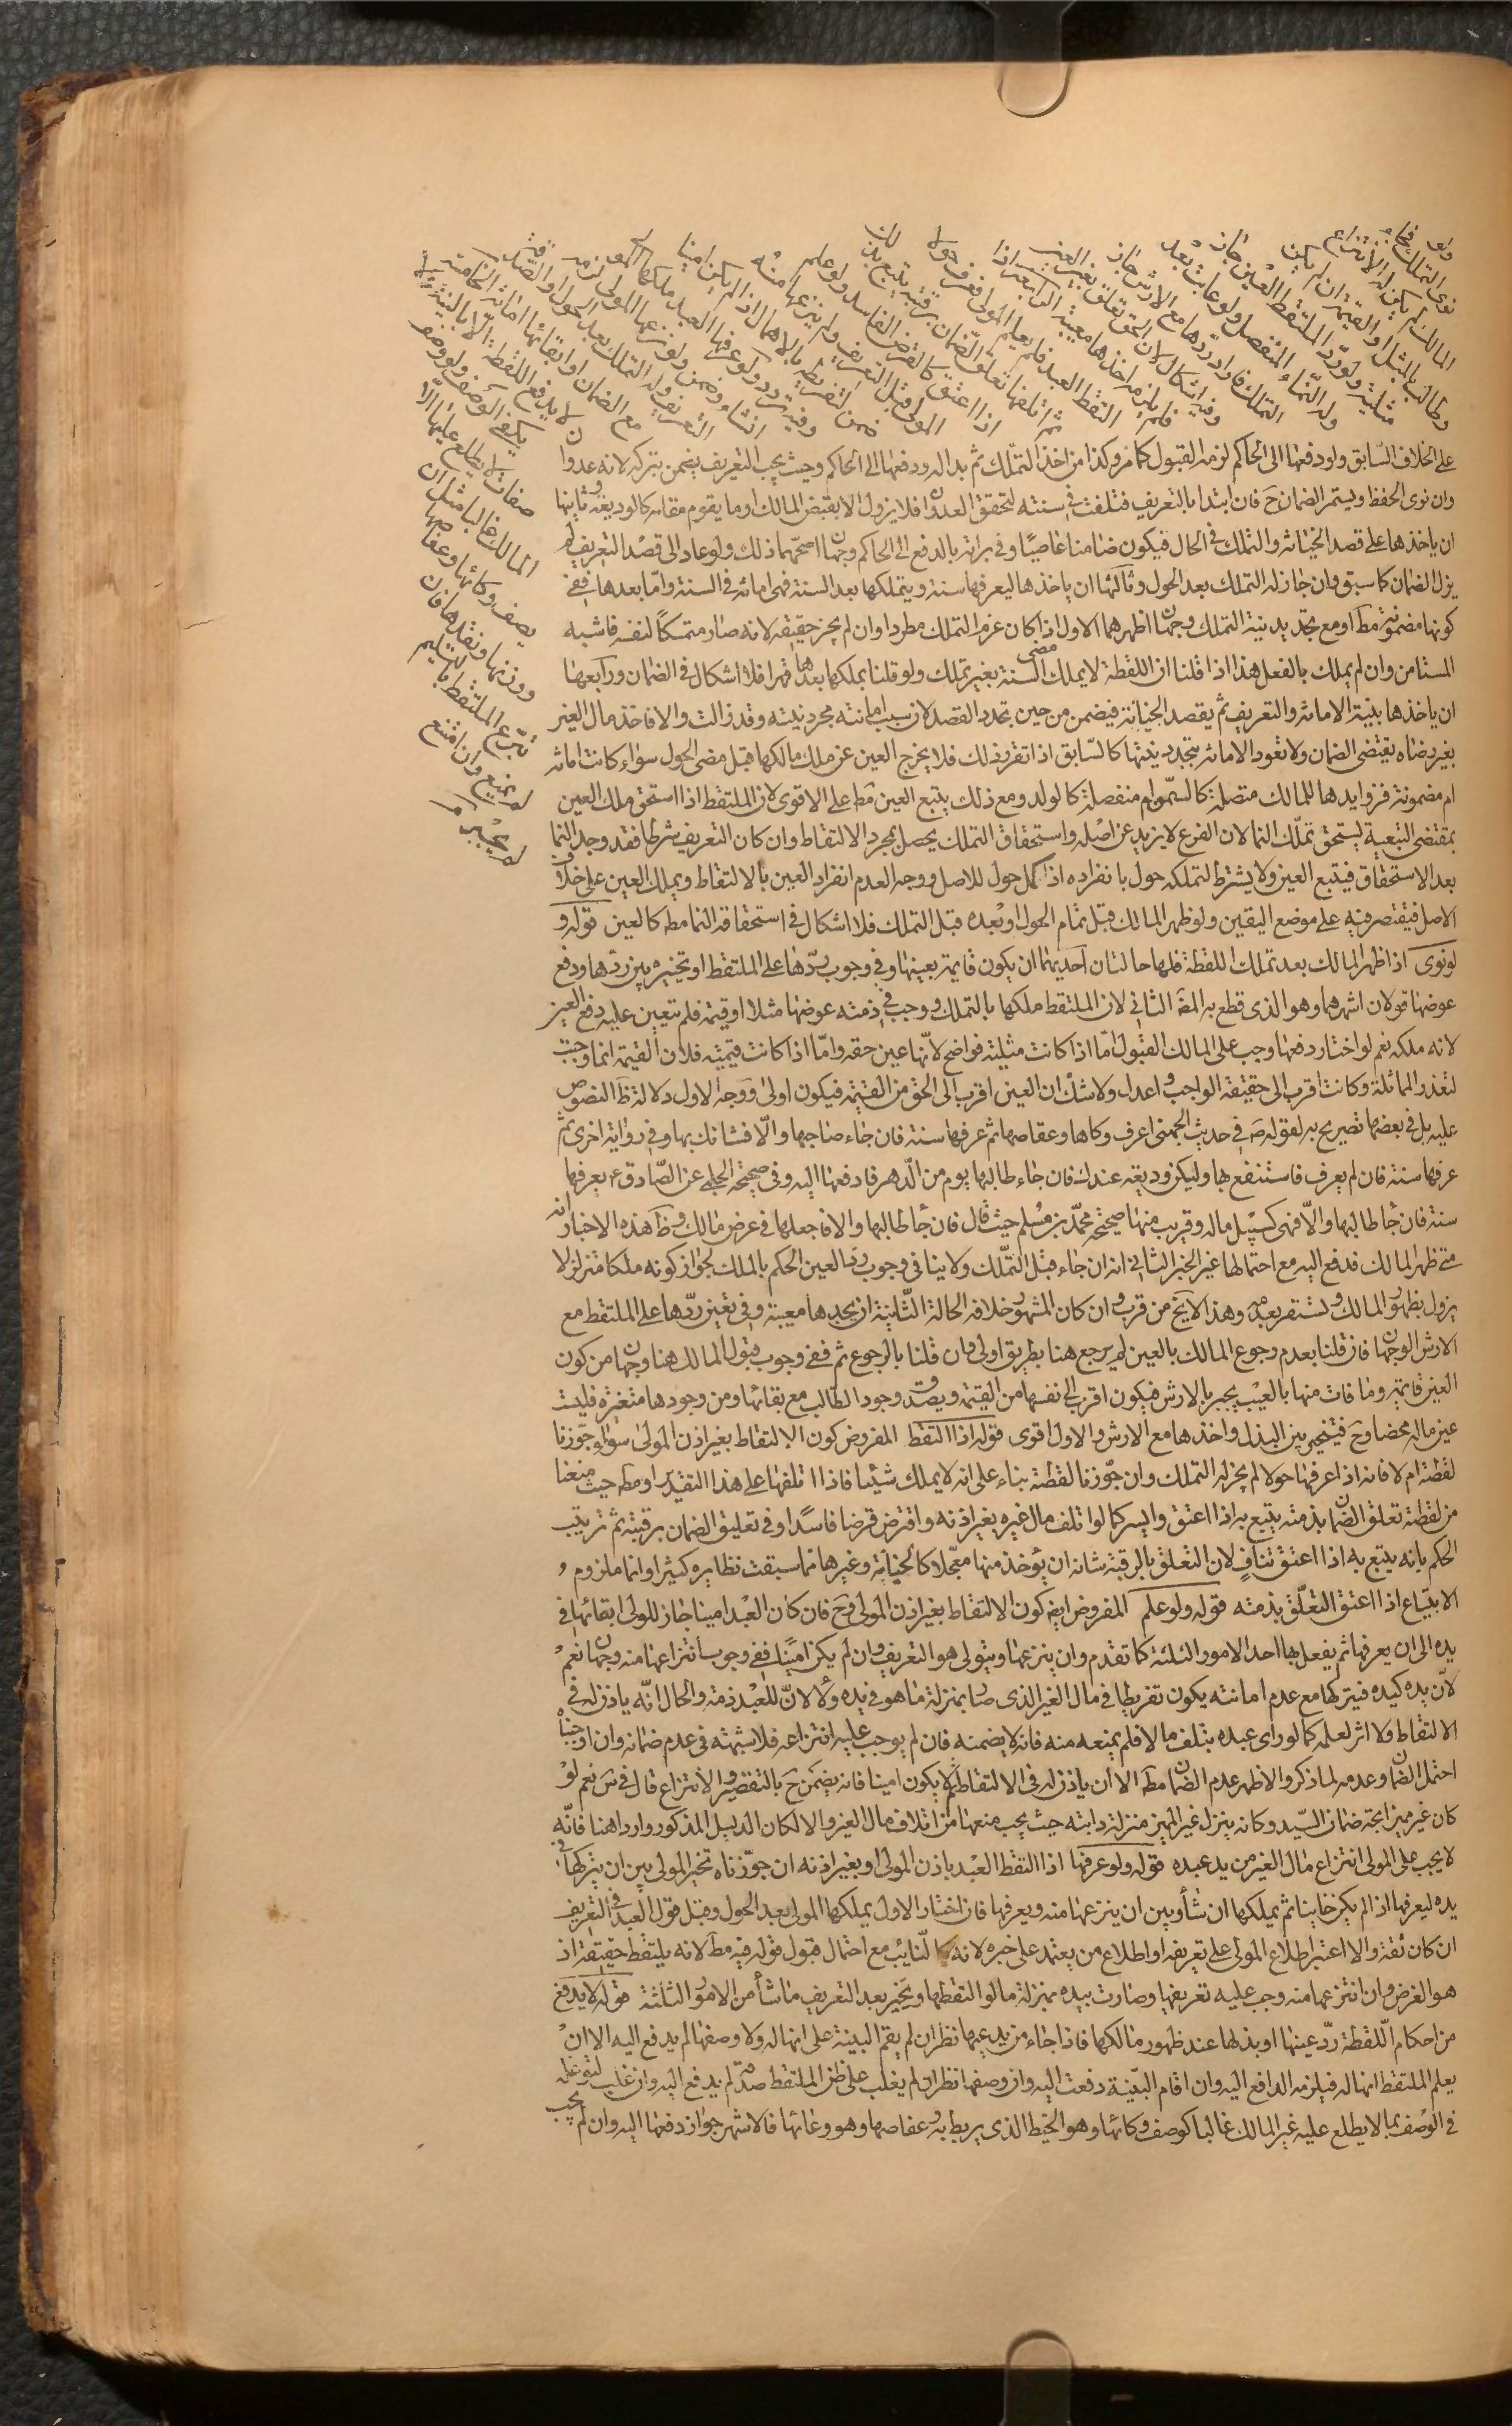 ولو
نوى التملك فجاء
المالك لم يكن له الانتزاع
وطالب بالمثل او القيمة ان لم يكن
مثلية ولو ردّ الملتقط العين جاز
وله النّماء المنفصل ولو عابت بعد
التملك فاراد ردها مع الارش جاز
وفيه اشكال لان الحق تعلق بغير العين
فلم يلزمه اخذها معيبة الرابعة اذا
التقط العبد فلم يعلم المولى فعرف حولا
ثم اتلفها تعلق الضمان برقبته يتبع بذلك
اذا اعتق كالقرض الفاسد ولو علم
المولى قبل التعريف ولم ينتزعها منه
ضمن لتفريطه بالاهمال اذا لم يكن امينا
وفيه تردد ولو عرفها العبد ملكها المولى ان
شاء وضمن ولو نزعها المولى لزمه
التعريف وله التملك بعد الحول او الصدقة
مع الضمان او ابقائها امانة الخامسة
لا يدفع اللقطة الّا بالبينة ولا
يكفي الوصف ولو وصف
صفات لا يطلع عليها الّا
المالك غالبا مثل ان
يصف وكائها وعفاصها
ووزنها ونقدها فان
تبرّع الملتقط بالتسليم
لم يمنع وان امتنع
لم يجبر
على الخلاف السّابق ولو دفعها الى الحاكم لزمه القبول كما مر وكذا من اخذ التملك ثم بدا له ودفعها الى الحاكم وحيث يجب التعريف يضمن بتركه لانه عدوان
وان نوى الحفظ ويستمر الضمان ح فان ابتدا بالتعريف فتلفت في سنته لتحقق العدوان فلا يزول الا بقبض المالك او ما يقوم مقامه كالوديعة وثانيها
ان ياخذها على قصد الخيانة والتملك في الحال فيكون ضامنا غاصبًا وفي برائته بالدفع الى الحاكم وجهان اصحّهما ذلك ولو عاد الى قصد التعريف لم
يزل الضمان كما سبق وان جاز له التملك بعد الحول وثالثها ان ياخذها ليعرفها سنة ويتملكها بعد السنة فهى امانة في السنة وامّا بعدها ففي
كونها مضمونة مط او مع تجديد نية التملك وجهان اظهرهما الاول اذا كان عزم التملك مطردا وان لم يجز حقيقة لانه صار متمسكًا لنفسه فاشبه
المستام وان لم يملك بالفعل هذا اذا قلنا ان اللقطة لا يملك مضى السنة بغير تملك ولو قلنا بملكها بعدها قهرا فلا اشكال في الضمان ورابعها
ان ياخذها بنية الامانة والتعريف ثم يقصد الخيانة فيضمن من حين تجدد القصد لان سبب امانته مجرد نيته وقد زالت والا فاخذ مال الغير
بغير رضاه يقتضى الضمان ولا تعود الامانة بتجدد نيتها كالسّابق اذا تقرر ذلك فلا يخرج العين عن ملك مالكها قبل مضى الحول سواء كانت امانة
ام مضمونة فزوايدها للمالك متصلة كالسّمن ام منفصلة كالولد ومع ذلك يتبع العين مط على الاقوى لان الملتقط اذا استحق ملك العين
بمقتضى التبعية يستحق تملّك النما لان الفرع لا يزيد عن اصله واستحقاق التملك يحصل بمجرد الالتقاط وان كان التعريف شرطا فقد وجد النما
بعد الاستحقاق فيتبع العين ولا يشترط لتملكه حول بانفراده اذا كمل حول للاصل ووجه العدم انفراد العين بالالتقاط ويملك العين على خلاف
الاصل فيقتصر فيه على موضع اليقين ولو ظهر المالك قبل تمام الحول او بعده قبل التملك فلا اشكال في استحقاقه النما مط كالعين قوله و
لو نوى اذا ظهر المالك بعد تملك اللقطة فلها حالتان احديهما ان يكون قايمة بعينها وفي وجوب ردّها على الملتقط او تخييره بين ردّها ودفع
عوضها قولان اشهرهما وهو الذى قطع به المص الثاني لان الملتقط ملكها بالتملك ووجب في ذمته عوضها مثلا او قيمة فلم يتعين عليه دفع العين
لانه ملكه نعم لو اختار دفعها وجب على المالك القبول امّا اذا كانت مثلية فواضح لانّها عين حقه وامّا اذا كانت قيمية فلان القيمة انما وجبت
لتعذر المماثلة وكانت اقرب الى حقيقة الواجب واعدل ولا شك ان العين اقرب الى الحق من القيمة فيكون اولى ووجه الاول دلالة ظ النصوص
عليه بل في بعضها تصريح به لقوله ص في حديث الجهنى اعرف وكاها وعفاصها ثم عرفها سنة فان جاء صاحبها والّا فشانك بها وفي رواية اخرى ثم
عرفها سنة فان لم يعرف فاستنفع بها وليكن وديعة عندك فان جاء طالبها يوم من الدهر فادفعها اليه وفي صحيحة الحلبي عن الصّادق ع يعرفها
سنة فان جا طالبها والّا فهى كسبيل ماله وقريب منها صحيحة محمّد بن مسلم حيث قال فان جا طالبها والا فاجعلها في عرض مالك وظ هذه الاخبار انه
متى ظهر المالك فدفع اليه مع احتمالها غير الخبر الثاني انه ان جاء قبل التملّك ولا ينافى وجوب رد العين الحكم بالملك لجواز كونه ملكا متزلزلا
يزول بظهور المالك ويستقر بعدمه وهذا لا يخ من قرب وان كان المشهور خلافه الحالة الثّانية ان يجدها معيبة وفي تعين ردّها على الملتقط مع
الارش الوجهان فان قلنا بعدم رجوع المالك بالعين لم يرجع هنا بطريق اولى وان قلنا بالرجوع ثم ففي وجوب قبول المالك هنا وجهان من كون
العين قايمة وما فات منها بالعيب يجبر بالارش فيكون اقرب الى نفسها من القيمة ويصدق وجود الطالب مع بقائها ومن وجودها متغيرة فليست
عين ماله محضا وح فيتخير بين البدل واخذها مع الارش والاول اقوى قوله اذا التقط المفروض كون الالتقاط بغير اذن المولى سواء جوّزنا
لقطته ام لا فانه اذا عرفها حولا لم يجز له التملك وان جوّزنا لقطته بناء على انه لا يملك شيئا فاذا اتلفها على هذا التقدير او مط حيث منعنا
من لقطته تعلق الضمان بذمته يتبع به اذا اعتق وايسر كما لو اتلف مال غيره بغير اذنه واقترض قرضا فاسدًا وفي تعليق الضمان برقبته ثم ترتيب
الحكم بانه يتبع به اذا اعتق تنافٍ لان التعلق بالرقبة شانه ان يؤخذ منها معجّلا كالجناية وغيرها مما سبقت نظايره كثيرا وانما ملزوم
الاتباع اذا اعتق التعلّق بذمته قوله ولو علم المفروض ايض كون الالتقاط بغير اذن المولى وح فان كان العبد امينا جاز للولى ابقائها في
يده الى ان يعرفها ثم يفعل بها احد الامور الثلثة كما تقدم وان ينزعها ويتولى هو التعريف وان لم يكن امينًا ففي وجوب انتزاعها منه وجهان نعم
لانّ يده كيده فيتركها مع عدم امانته يكون تفريطا في مال الغير الذى صار بمنزلة ما هو في يده ولا لانّ للعبد ذمة والحال انّه ياذن له في
الالتقاط ولا اثر لعلمه كما لو راى عبده يتلف مالا فلم يمنعه منه فانه لا يضمنه فان لم يوجب عليه انتزاعه فلا شبهة في عدم ضمانه وان اوجبناه
احتمل الضمان وعدمه لما ذكر والاظهر عدم الضمان مط الا ان ياذن له في الالتقاط ولا يكون امينا فانه يضمن ح بالتقصير والانتزاع قال في س نعم لو
كان غير مميز اتجه ضمان السّيد وكانه ينزل غير المميز منزلة دابته حيث يجب منعها من اتلاف مال الغير والا لكان الدليل المذكور واردا هنا فانّه
لا يجب على المولى انتزاع مال الغير من يد عبده قوله ولو عرفها اذا التقط العبد باذن المولى او بغير اذنه ان جوّزناه تخير المولى بين ان يتركها في
يده ليعرفها اذا لم يكن خاينا ثم يملكها ان شأ وبين ان ينزعها منه ويعرفها فان اختار الاول يملكها المولى بعد الحول وقبل قول العبد في التعريف
ان كان ثقة والا اعتبر اطلاع المولى على تعريفه او اطلاع من يعتمد على خبره لانه كالنّايب مع احتمال قبول قوله فيه مط لانه يلتقط حقيقة اذ
هو الغرض وان انتزعها منه وجب عليه تعريفها وصارت بيده بمنزلة ما لو التقطها ويخير بعد التعريف ما شأ من الامور الثلثة قوله لا يدفع
من احكام اللقطة ردّ عينها او بذلها عند ظهور مالكها فاذا جاء من يدعيها نظر ان لم يقم البينة على انها له ولا وصفها لم يدفع اليه الا ان
يعلم الملتقط انها له فيلزمه الدافع اليه وان اقام البيّنة دفعت اليه وان وصفها نظر ان لم يغلب على ظن الملتقط صدقه لم يدفع اليه وان غلب لتوغله
في الوصف بما لا يطلع عليه غير المالك غالبا كوصف وكائها وهو الخيط الذى يربط به وعفاصها وهو وعائها فالاشهر جواز دفعها اليه وان لم يجب